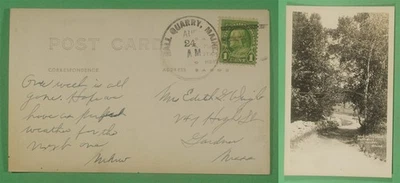 POST CARD
HALL QUARRY, MAINE
AUG
24
A M
1
CORRESPONDENCE
ADDRESS
One week is all
gone. Hope we
have as perfect
weather for the
next one.
Mrs Edith D.
247 High St.
Gardner
Mass